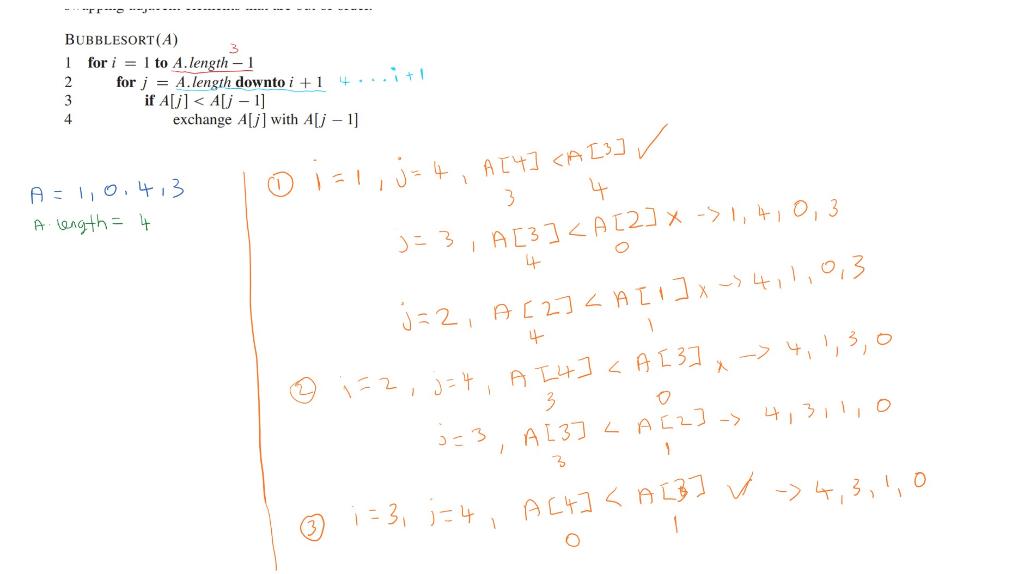 BUBBLESORT(A)
3
1 for i = 1 to A.length − 1
2 for j = A.length downto i + 1 4 ... i+1
3 if A[j] < A[j − 1]
4 exchange A[j] with A[j − 1]
A = 1, 0, 4, 3
A.length = 4
① i=1, j=4, A[4] < A[3] ✓
3 4
j=3, A[3] < A[2] x -> 1, 4, 0, 3
4 0
j=2, A[2] < A[1] x -> 4, 1, 0, 3
4 1
② i=2, j=4, A[4] < A[3] x -> 4, 1, 3, 0
3 0
j=3, A[3] < A[2] -> 4, 3, 1, 0
3 1
③ i=3, j=4, A[4] < A[3] ✓ -> 4, 3, 1, 0
0 1